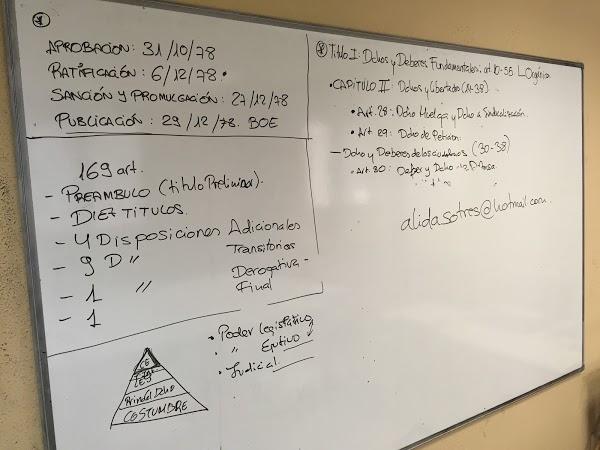 APROBACIÓN: 31/10/78
RATIFICACIÓN: 6/12/78.
SANCIÓN Y PROMULGACIÓN: 27/12/78
PUBLICACIÓN: 29/12/78. BOE
169 art.
- PREAMBULO (título Preliminar).
- DIEZ TÍTULOS.
- 4 Disposiciones Adicionales
- 9 D " Transitorias
- 1 " Derogativa -
- 1 Final
CE
Principi Dcho
COSTUMBRE
• Poder legislativo
• " Ejctivo
• Judicial
Título I: Dchos y Deberes Fundamentales: art 10-55. L Orgánica
• CAPÍTULO II: Dchos y libertades (14-38).
• Art. 28: Dcho Huelga y Dcho a Sindicalización.
• Art 29: Dcho de Petición.
- Dchos y Deberes de los ciudadanos (30-38)
• Art. 30: Deber y Dcho
alidasotres@hotmail.com.